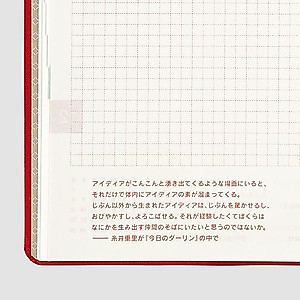 アイディアがこんこんと湧き出てくるような場面にいると、
それだけで体内にアイディアの素が溜まってくる。
じぶん以外から生まれたアイディアは、じぶんを驚かせるし、
おびやかすし、よろこばせる。それが経験したくてぼくらは
なにかを生み出す仲間のそばにいたいと思うのではないか。
—— 糸井重里が『今日のダーリン』の中で